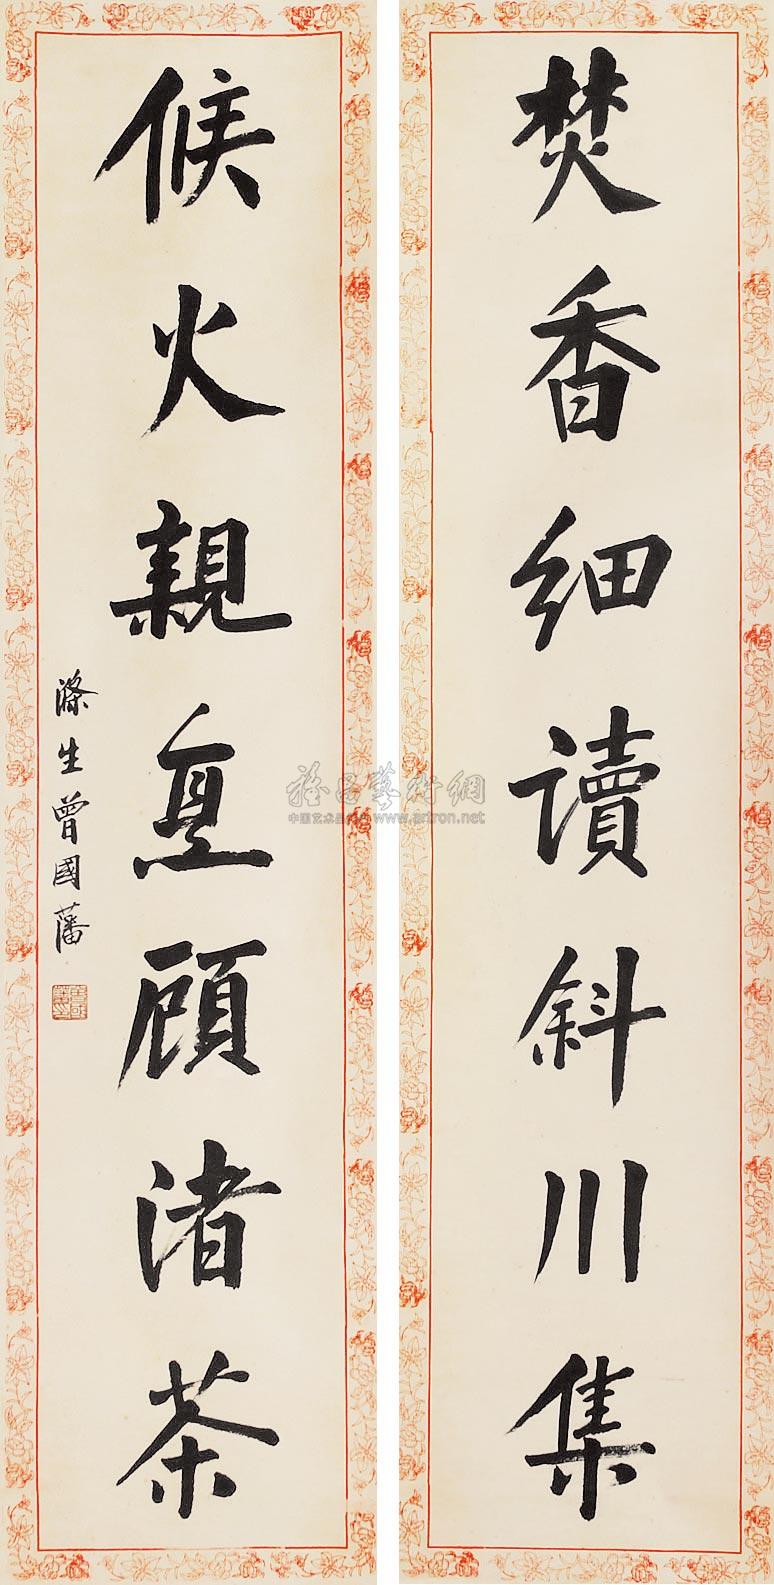 焚香细讀斜川集
候火親烹顧渚茶
滌生曾國藩
雅昌藝術網
中国艺术品 www.artron.net